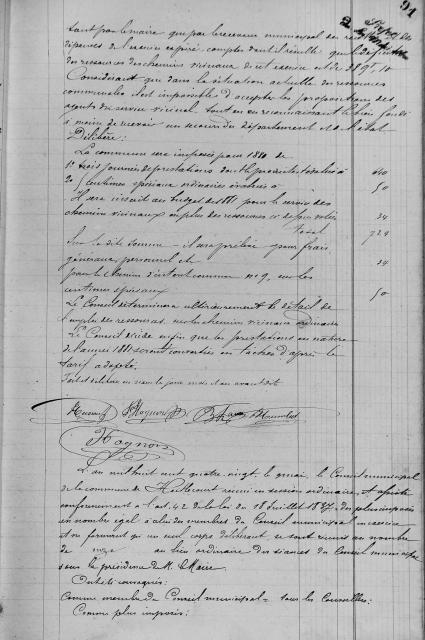 91
tant par le maire que par le receveur municipal des recettes
dépenses de l'exercice expiré, comptes dont il résulte que le déficit
des ressources des chemins vicinaux de cet exercice est de
Considérant que dans la situation actuelle des ressources
communales il est impossible d'accepter les propositions des
agents du service vicinal tout en en reconnaissant le bien fondé
à moins de recevoir un secours du département ou de l'Etat
Délibère:
La commune sera imposée pour 188 de
1° trois journées de prestations dont le produit est évalué à
2° 5 centimes spéciaux ordinaires évalués à 50
Il sera inscrit au budget de 1881 pour le service des
chemins vicinaux en plus des ressources ci-dessus votées 34
Total 724
Sur la dite somme il sera prélevé pour frais
généraux, personnel etc 34
pour le chemin d'intérêt commun n° 9, sur les
centimes spéciaux 50
Le Conseil déterminera ultérieurement le détail de
l'emploi des ressources sur les chemins vicinaux ordinaires
Le Conseil décide enfin que les prestations en nature
de l'année 1881 seront converties en tâches d'après le
tarif adopté.
Fait et délibéré en séance les jour, mois et an avant dit
Hognon
Hognon
L'an mil huit cent quatre-vingt, le mai, le Conseil municipal
de la commune de réuni en session ordinaire, et après
conformément à l'art. 42 de la loi du 18 Juillet 1837, des plus imposés
en nombre égal à celui des membres du Conseil municipal en exercice
et ne formant qu'un seul corps délibérant, se sont réunis au nombre
de au lieu ordinaire des séances du Conseil municipal
sous la présidence de M. le Maire.
Ont été convoqués:
Comme membres du Conseil municipal = tous les Conseillers;
Comme plus imposés: